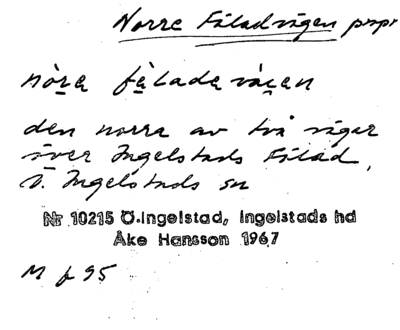 Norre Fäladvägen propr
nòrą fą̀ladą vàgen
den norra av två vägar
över Ingelstads Fälad,
Ö. Ingelstads sn
Nr 10215 Ö.Ingelstad, Ingelstads hd
Åke Hansson 1967
M f 95